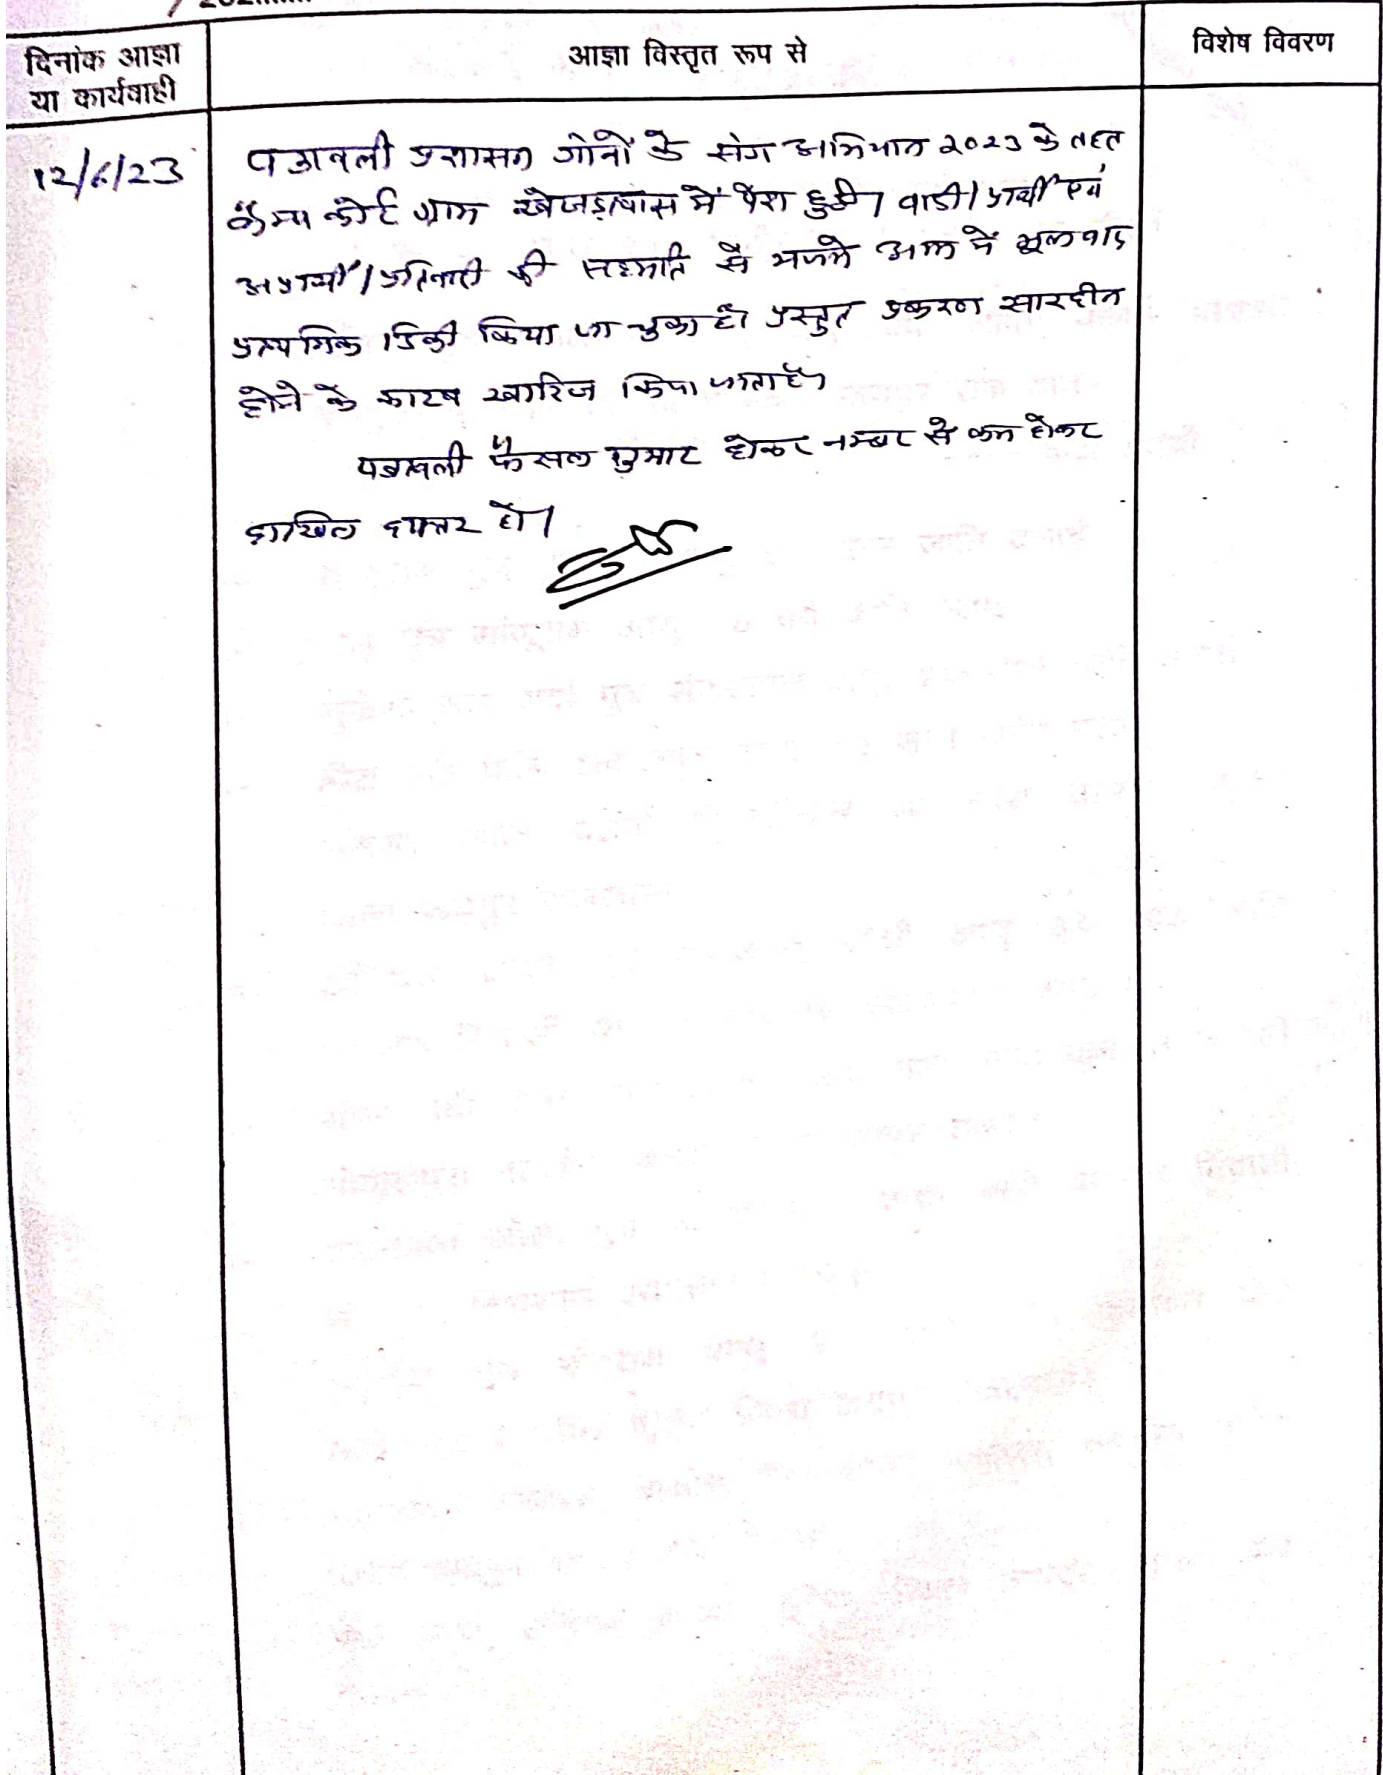 दिनांक आज्ञा
या कार्यवाही
आज्ञा विस्तृत रूप से
विशेष विवरण
12/6/23
पत्रावली प्रशासन गांवों के संग अभियान 2023 के तहत
कैम्प कोर्ट ग्राम खेजड़ावास में पेश हुई। वादी/प्रार्थी एवं
अप्रार्थी/प्रतिवादी की सहमति से में मूलवाद
डिक्री किया जा चुका है। प्रस्तुत प्रकरण सारहीन
होने के कारण खारिज किया जाता है।
पत्रावली फैसल शुमार होकर नम्बर से कम होकर
दाखिल दफ्तर हो।